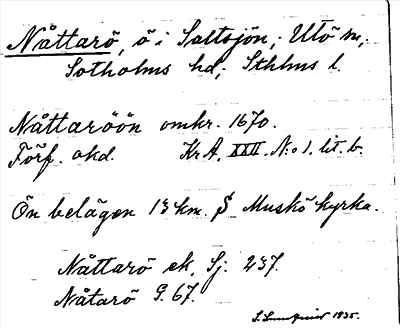 Nåttarö, ö i Saltsjön; Utö sn,
Sotholms hd; Sthlms l.
Nåttaröön omkr. 1670.
Förf. okd. KrA. XXII. N:o 1. lit. b.
Ön belägen 13 km. S Muskö kyrka.
Nåttarö ek. Sj. 237.
Nåtarö G. 67.
1935.